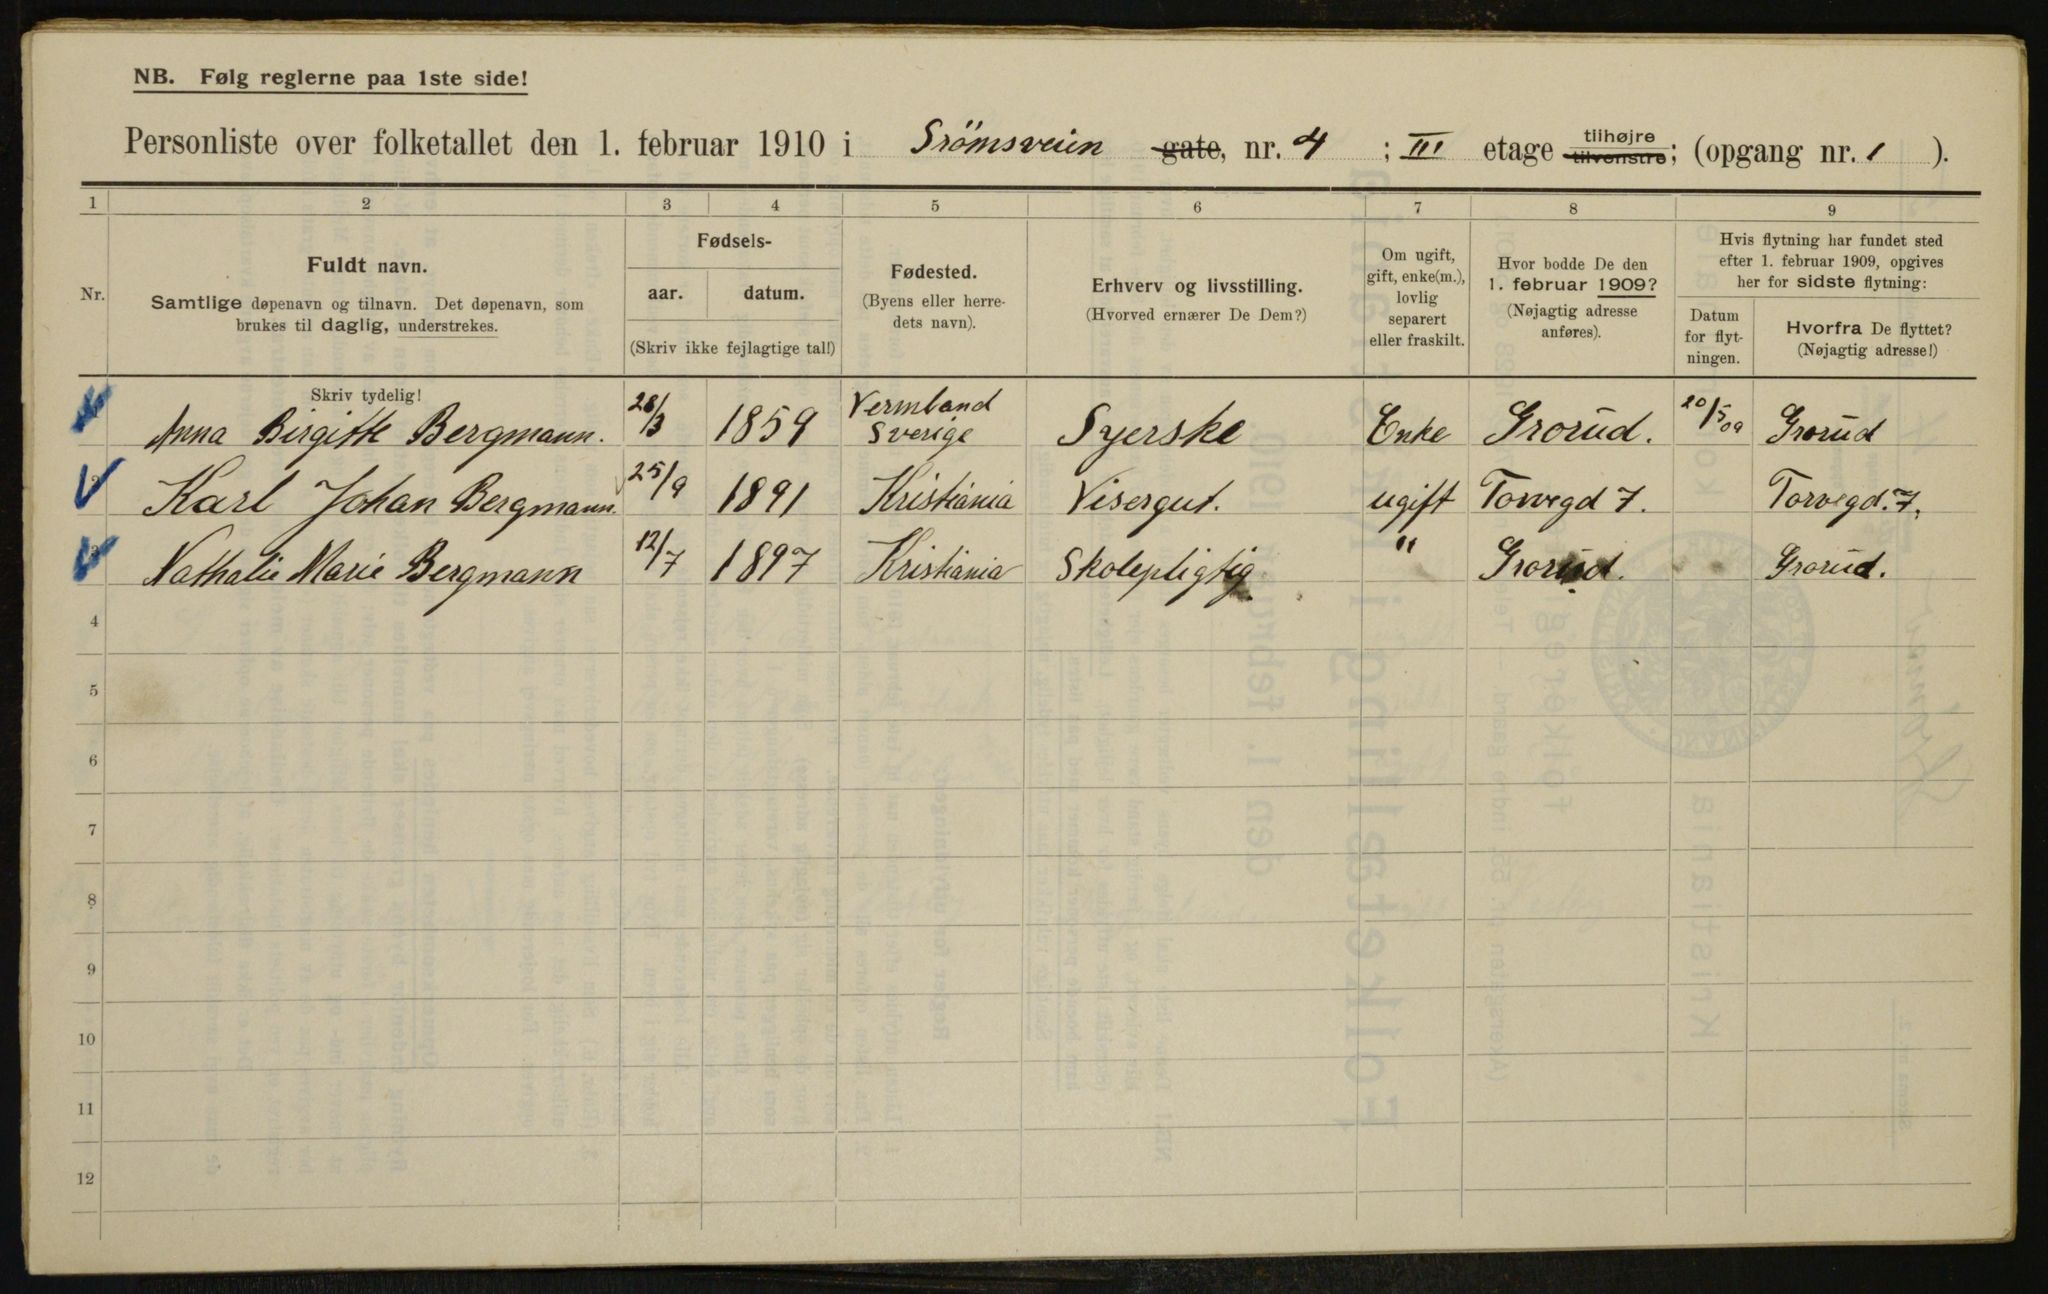 NB. Følg reglerne paa 1ste side!
Personliste over folketallet den 1. februar 1910 i Srömsveien gate, nr. 4 ; III etage tilhøjre tilvenstre; (opgang nr. 1 ).
1 2 3 4 5 6 7 8 9
Nr.
Fuldt navn.
Samtlige døpenavn og tilnavn. Det døpenavn, som
brukes til daglig, understrekes.
Fødsels-
aar. datum.
(Skriv ikke fejlagtige tal!)
Fødested.
(Byens eller herre-
dets navn).
Erhverv og livsstilling.
(Hvorved ernærer De Dem?)
Om ugift,
gift, enke(m.),
lovlig
separert
eller fraskilt.
Hvor bodde De den
1. februar 1909?
(Nøjagtig adresse
anføres).
Hvis flytning har fundet sted
efter 1. februar 1909, opgives
her for sidste flytning:
Datum
for flyt-
ningen.
Hvorfra De flyttet?
(Nøjagtig adresse!)
Skriv tydelig!
1 Anna Birgitte Bergmann. 28/3 1859 Vermland Sverige Syerske Enke Grorud. 20/5 09 Grorud
2 Karl Johan Bergmann. 25/9 1891 Kristiania Visergut. ugift Torvegd 7. Torvegd. 7.
3 Nathalie Marie Bergmann 12/7 1897 Kristiania Skolepligtig " Grorud. Grorud.
4
5
6
7
8
9
10
11
12